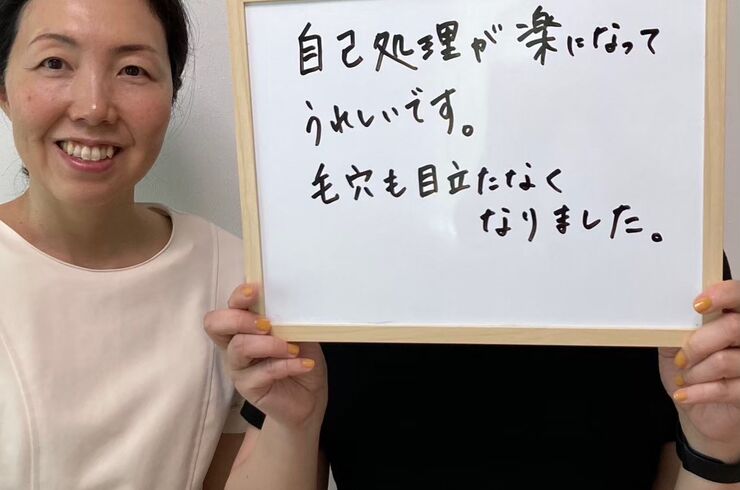 自己処理が楽になって
うれしいです。
毛穴も目立たなく
なりました。